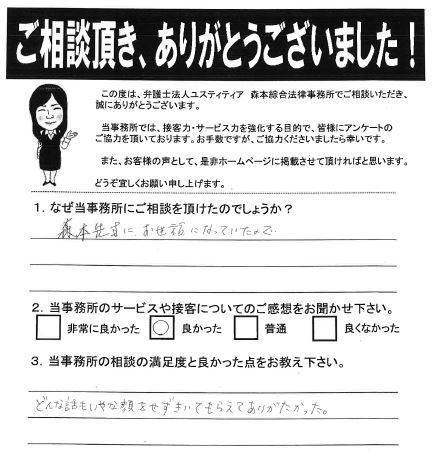 ご相談頂き、ありがとうございました！
この度は、弁護士法人ユスティティア　森本綜合法律事務所でご相談いただき、
誠にありがとうございます。
当事務所では、接客力・サービス力を強化する目的で、皆様にアンケートの
ご協力を頂いております。お手数ですが、ご協力くださいましたら幸いです。
また、お客様の声として、是非ホームページに掲載させて頂ければと思います。
どうぞ宜しくお願い申し上げます。
1．なぜ当事務所にご相談を頂けたのでしょうか？
森本先生に お世話になっていたので
2．当事務所のサービスや接客についてのご感想をお聞かせ下さい。
非常に良かった　○ 良かった　普通　良くなかった
3．当事務所の相談の満足度と良かった点をお教え下さい。
どんな話もいやな顔をせずきいてもらえてありがたかった。